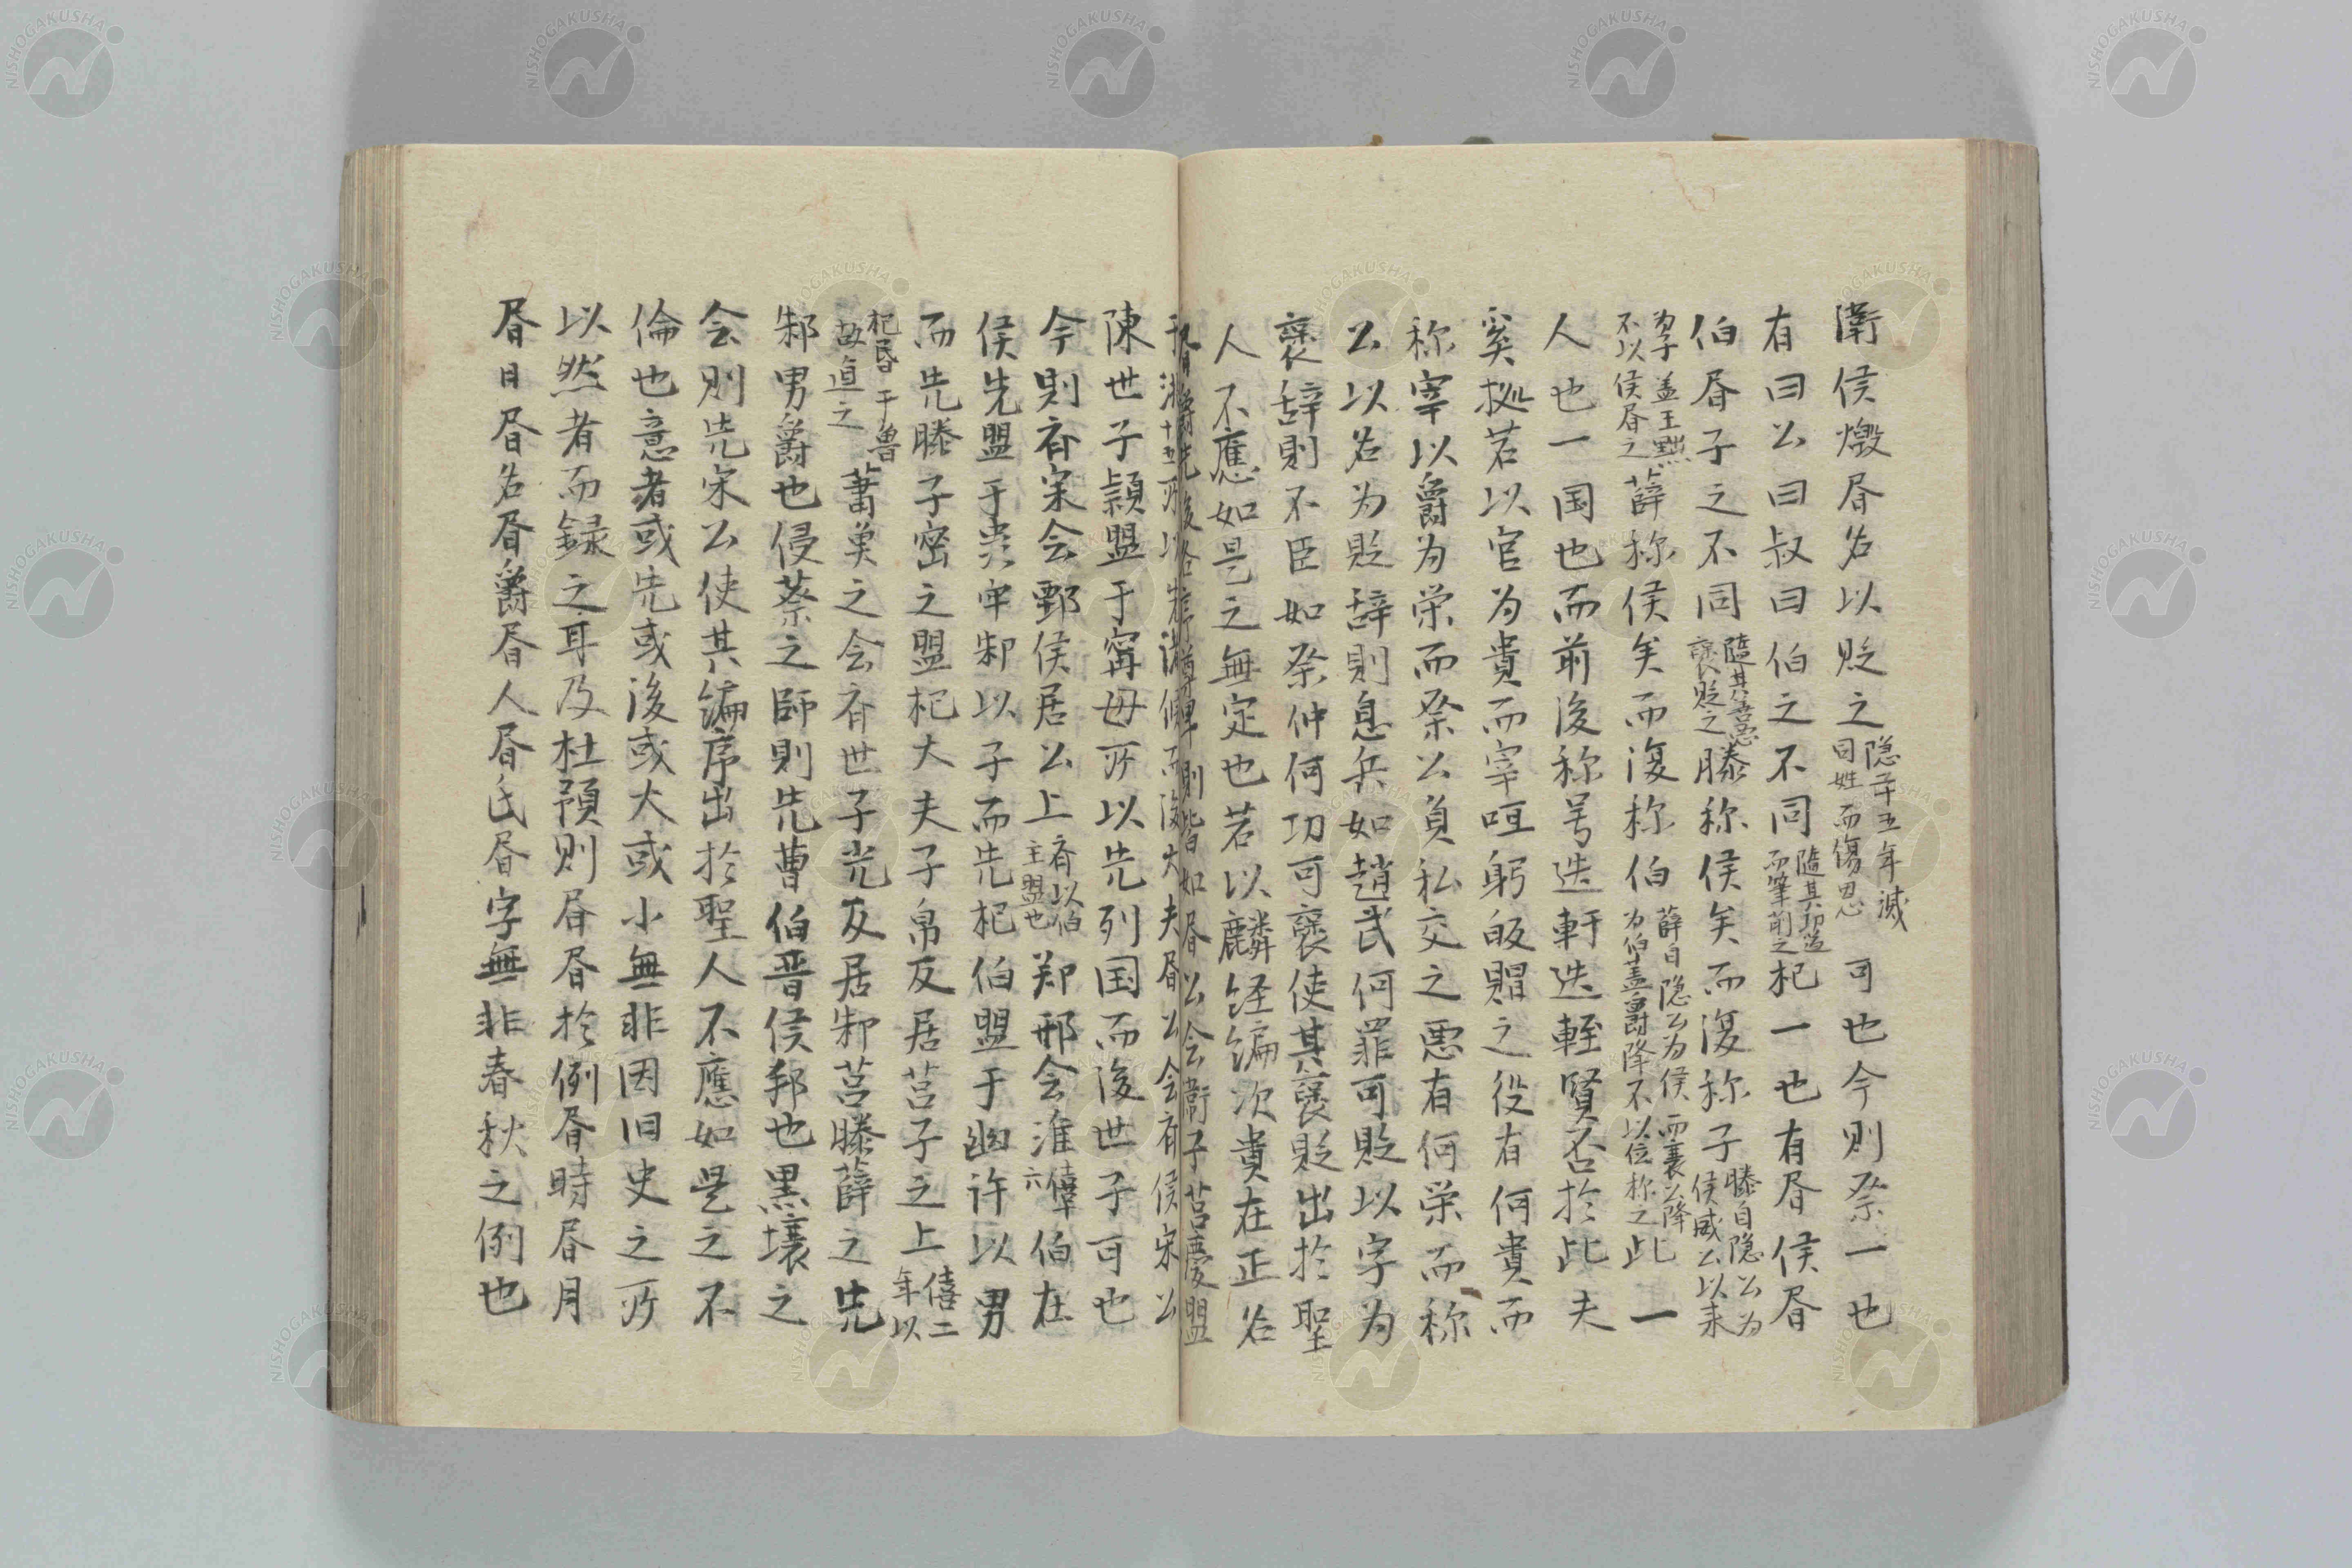 衛侯燬㫺名以貶之隠二十五年滅同姓而傷恩可也今則祭一也
有曰公曰叔曰伯之不同隨其功過而筆削之杞一也有㫺侯㫺
伯㫺子之不同隨其善悪褒貶之滕称侯矣而復称子滕自隠公為侯威公以来
為子盖王黜不以侯㫺之薛称侯矣而復称伯薛自隠公為侯而襄公降為伯盖爵降不以位称之此一
人也一国也而前後称号迭軒迭輊賢否於此夫
奚拠若以官為貴而宰咺躬皈賵之役有何貴而
称宰以爵為栄而祭公負私交之悪有何栄而称
公以名为貶辞則息兵如趙武何罪可貶以字为
褒辞則不臣如祭仲何功可褒使其褒貶出於聖
人不應如是之無定也若以麟経編次貴在正名
則皆如㫺公会衛子莒慶盟
夫㫺公会斉侯宋公
陳世子款盟于甯毋所以先列国而後世子可也
今則斉宋会鄄侯居公上斉以伯主盟也郑邢会淮僖十六伯在
侯先盟于虫牢邾以子而先杞伯盟于幽许以男
而先滕子密之盟杞大夫子帛反居莒子之上僖二年以
杞㫺于魯故迫之蕭莫之会斉世子光反居邾莒滕薛之先
邾男爵也侵蔡之師則先曹伯晋侯邾也黒壌之
会則先宋公使其編序出於聖人不應如是之不
倫也意者或先或後或大或小無非因旧史之所
以然者而録之耳及杜預則㫺㫺於例㫺時㫺月
㫺日㫺名㫺爵㫺人㫺氏㫺字無非春秋之例也